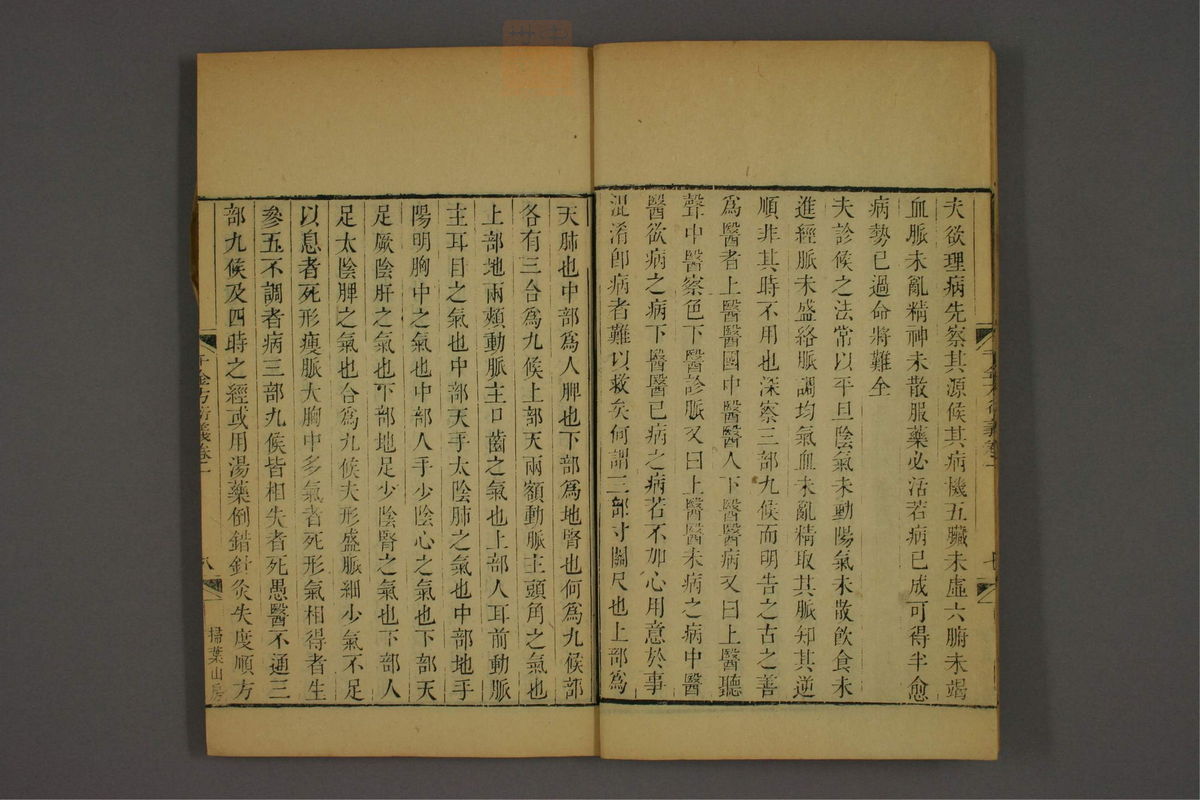 夫欲理病先察其源候其病機五臟未虛六腑未竭
血脈未亂精神未散服藥必活若病已成可得半愈
病勢已過命將難全
夫診候之法常以平旦陰氣未動陽氣未散飲食未
進經脈未盛絡脈調均氣血未亂精取其脈知其逆
順非其時不用也深察三部九候而明告之古之善
為醫者上醫醫國中醫醫人下醫醫病又曰上醫聽
聲中醫察色下醫診脈又曰上醫醫未病之病中醫
醫欲病之病下醫醫已病之病若不加心用意於事
混淆卽病者難以救矣何謂三部寸關尺也上部為
天肺也中部為人脾也下部為地腎也何為九候部
各有三合為九候上部天兩額動脈主頭角之氣也
上部地兩頰動脈主口齒之氣也上部人耳前動脈
主耳目之氣也中部天手太陰肺之氣也中部地手
陽明胸中之氣也中部人手少陰心之氣也下部天
足厥陰肝之氣也下部地足少陰腎之氣也下部人
足太陰脾之氣也合為九候夫形盛脈細少氣不足
以息者死形瘦脈大胸中多氣者死形氣相得者生
參五不調者病三部九候皆相失者死愚醫不通三
部九候及四時之經或用湯藥倒錯針灸失度順方
千金方衍義卷一
八
掃葉山房